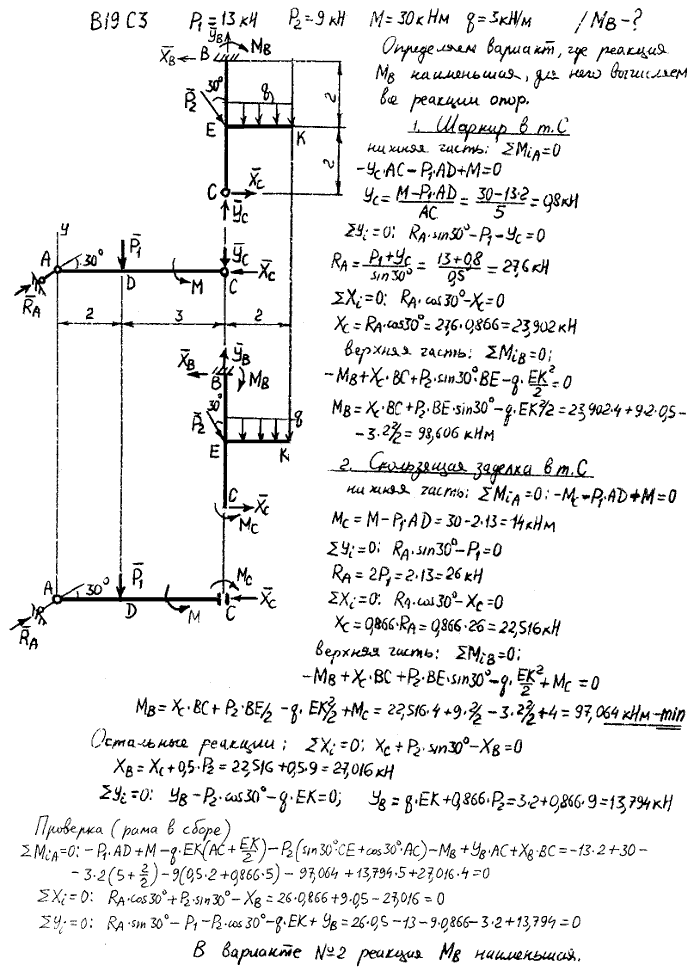 В19 С3 P₁ = 13 кН P₂ = 9 кН M = 30 кНм q = 3 кН/м / M_B - ?
Определяем вариант, где реакция
M_B наименьшая, для него вычисляем
все реакции опор.
1. Шарнир в т. С
нижняя часть: ΣM_iA = 0
-Y_C·AC - P₁·AD + M = 0
Y_C = (M - P₁·AD)/AC = (30 - 13·2)/5 = 0,8 кН
ΣY_i = 0: R_A·sin30° - P₁ - Y_C = 0
R_A = (P₁ + Y_C)/sin30° = (13 + 0,8)/0,5 = 27,6 кН
ΣX_i = 0: R_A·cos30° - X_C = 0
X_C = R_A·cos30° = 27,6·0,866 = 23,902 кН
верхняя часть: ΣM_iB = 0;
-M_B + X_C·BC + P₂·sin30°·BE - q·EK²/2 = 0
M_B = X_C·BC + P₂·BE·sin30° - q·EK²/2 = 23,902·4 + 9·2·0,5 -
- 3·2²/2 = 98,606 кНм
2. Скользящая заделка в т. С
нижняя часть: ΣM_iA = 0: -M_C - P₁·AD + M = 0
M_C = M - P₁·AD = 30 - 2·13 = 14 кНм
ΣY_i = 0: R_A·sin30° - P₁ = 0
R_A = 2P₁ = 2·13 = 26 кН
ΣX_i = 0: R_A·cos30° - X_C = 0
X_C = 0,866·R_A = 0,866·26 = 22,516 кН
верхняя часть: ΣM_iB = 0:
-M_B + X_C·BC + P₂·BE·sin30° - q·EK²/2 + M_C = 0
M_B = X_C·BC + P₂·BE/2 - q·EK²/2 + M_C = 22,516·4 + 9·2/2 - 3·2²/2 + 4 = 97,064 кНм - min
Остальные реакции: ΣX_i = 0: X_C + P₂·sin30° - X_B = 0
X_B = X_C + 0,5·P₂ = 22,516 + 0,5·9 = 27,016 кН
ΣY_i = 0: Y_B - P₂·cos30° - q·EK = 0; Y_B = q·EK + 0,866·P₂ = 3·2 + 0,866·9 = 13,794 кН
Проверка (рама в сборе)
ΣM_iA = 0: -P₁·AD + M - q·EK(AC + EK/2) - P₂(sin30°·CE + cos30°·AC) - M_B + Y_B·AC + X_B·BC = -13·2 + 30 -
- 3·2(5 + 2/2) - 9(0,5·2 + 0,866·5) - 97,064 + 13,794·5 + 27,016·4 = 0
ΣX_i = 0: R_A·cos30° + P₂·sin30° - X_B = 26·0,866 + 9·0,5 - 27,016 = 0
ΣY_i = 0: R_A·sin30° - P₁ - P₂·cos30° - q·EK + Y_B = 26·0,5 - 13 - 9·0,866 - 3·2 + 13,794 = 0
В варианте №2 реакция M_B наименьшая.
Y_B
X_B B M_B
30°
P₂ q 2
E K
2
C X_C
Y_C
y P₁ Y_C
A 30° X_C
R_A D M C
2 3 2
Y_B
X_B B M_B
30° q
P₂
E K
C X_C
M_C
P₁ M_C
A 30° X_C
R_A D M C